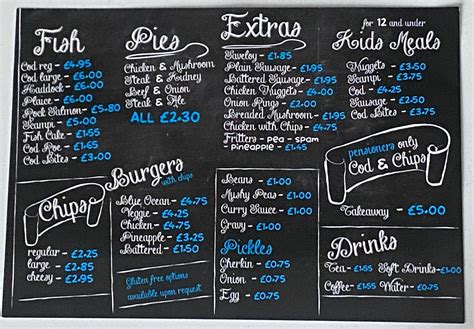 Fish
Cod reg - £4.95
Cod large - £6.00
Haddock - £6.00
Plaice - £6.00
Rock Salmon - £5.80
Scampi - £5.00
Fish Cake - £1.55
Cod Roe - £1.65
Cod Bites - £3.00
Pies
Chicken & Mushroom
Steak & Kidney
Beef & Onion
Steak & Ale
ALL £2.30
Extras
Saveloy - £1.85
Plain Sausage - £1.95
Battered Sausage - £1.95
Chicken Nuggets - £4.00
Onion Rings - £2.00
Breaded Mushroom - £1.95
Chicken with Chips - £4.75
Fritters - pea - spam
- pineapple - £1.45
for 12 and under
Kids Meals
Nuggets - £3.50
Scampi - £3.75
Cod - £4.00
Sausage - £2.50
Cod Bites - £3.00
pensioners only
Cod & Chips
Takeaway - £5.00
Chips
regular - £2.25
large - £2.85
cheesy - £2.95
Burgers
with chips
Blue Ocean - £4.75
Veggie - £4.25
Chicken - £4.75
Pineapple - £3.25
Battered - £1.50
Gluten free options
available upon request
Beans - £1.00
Mushy Peas - £1.00
Curry Sauce - £1.00
Gravy - £1.00
Pickles
Gherkin - £0.75
Onion - £0.75
Egg - £0.75
Drinks
Tea - £1.55 Soft Drinks - £1.00
Coffee - £1.55 Water - £0.75